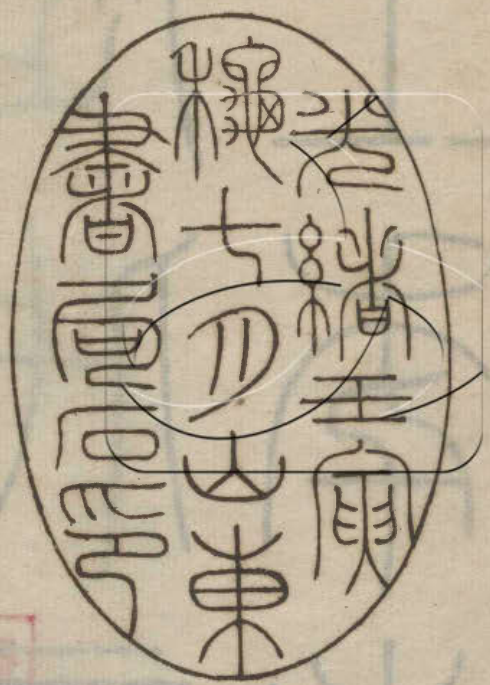 光緒壬寅
龝七月山東
書局石印